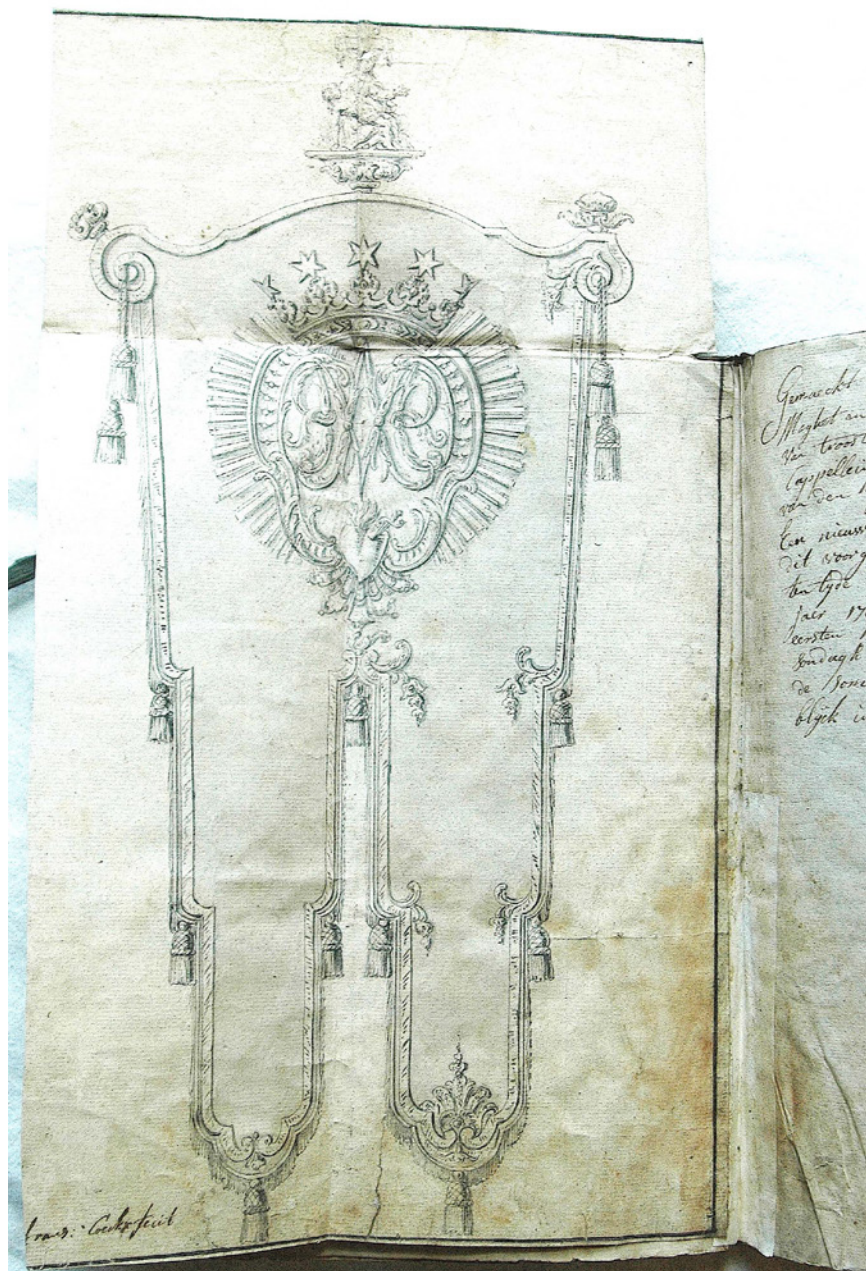 Gemaeckt
Meghel
Van troost
Cappellei
van den
Een nieuw
dit voorg
ten tyde
Jaer 17
eersten
sondagh
de
blijck
frans: Coeckx fecit